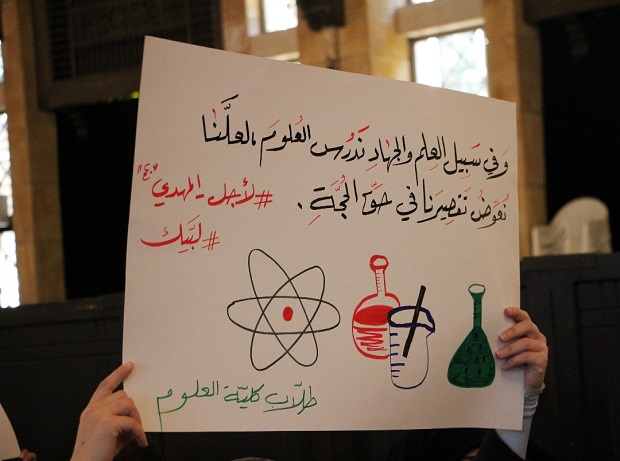 وَفِي سَبِيلِ العِلمِ والجِهَادِ نَدرُسُ العُلومَ، لعلَّنا
نُعَوِّضُ تَقصِيرَنا فِي حَقِّ الحُجَّةِ.
#لأجل_المهدي "عج"
#لبَّيك
طلاب كليّة العلوم